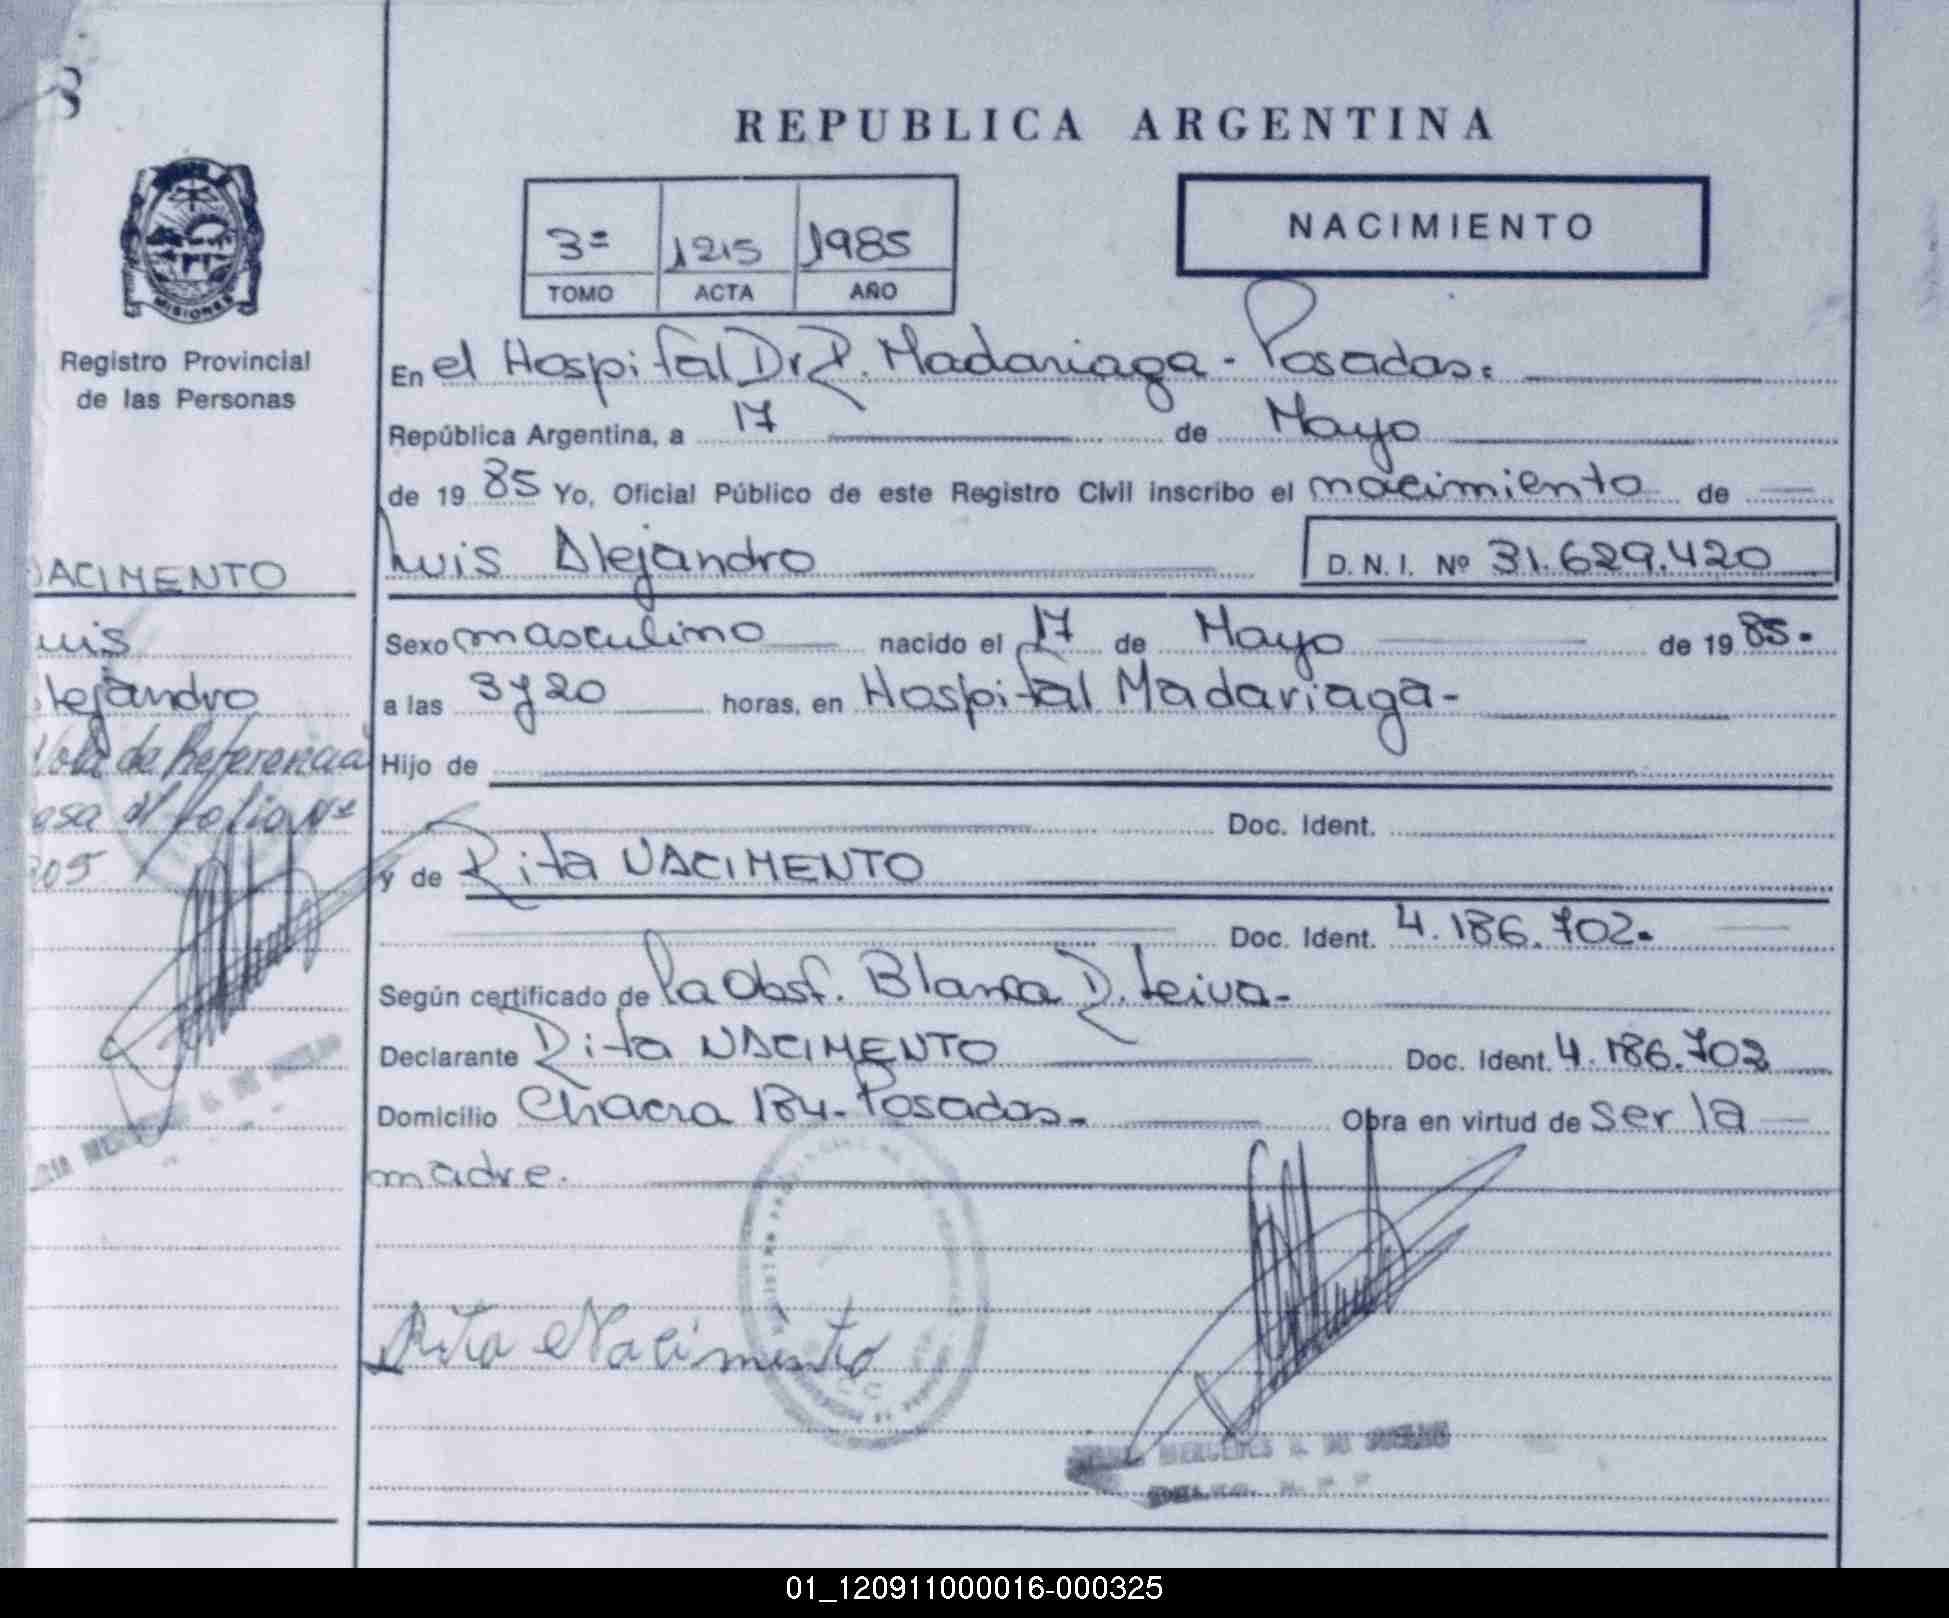 8
REPUBLICA ARGENTINA
NACIMIENTO
3ª 1215 1985
TOMO ACTA AÑO
MISIONES
Registro Provincial
de las Personas
En el Hospital Dr R. Madariaga - Posadas.
República Argentina, a 17 de Mayo
de 19 85 Yo, Oficial Público de este Registro Civil inscribo el nacimiento de
Luis Alejandro D. N. I. Nº 31.629.420
Sexo masculino nacido el 17 de Mayo de 19 85.
a las 3 y 20 horas, en Hospital Madariaga -
Hijo de
Doc. Ident.
y de Rita NACIMENTO
Doc. Ident. 4.186.702.
Según certificado de la Obst. Blanca D. Leiva -
Declarante Rita NACIMENTO Doc. Ident. 4.186.702
Domicilio Chacra 134 - Posadas - Obra en virtud de ser la
madre.
Rita Nacimento
MERCEDES
NACIMENTO
uis
lejandro
Nota de Referencia
asa al folio Nº
305
01_120911000016-000325